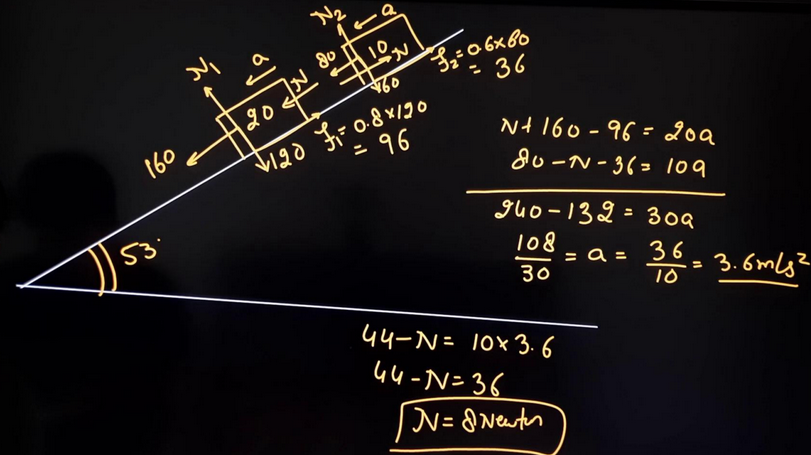 N₂
a
80
10
N
60
f₂ = 0.6×60
= 36
N₁
a
20
N
160
120
f₁ = 0.8×120
= 96
53°
N+160-96 = 20a
80-N-36 = 10a
240-132 = 30a
108/30 = a = 36/10 = 3.6m/s²
44-N = 10×3.6
44-N = 36
N = 8 Newton